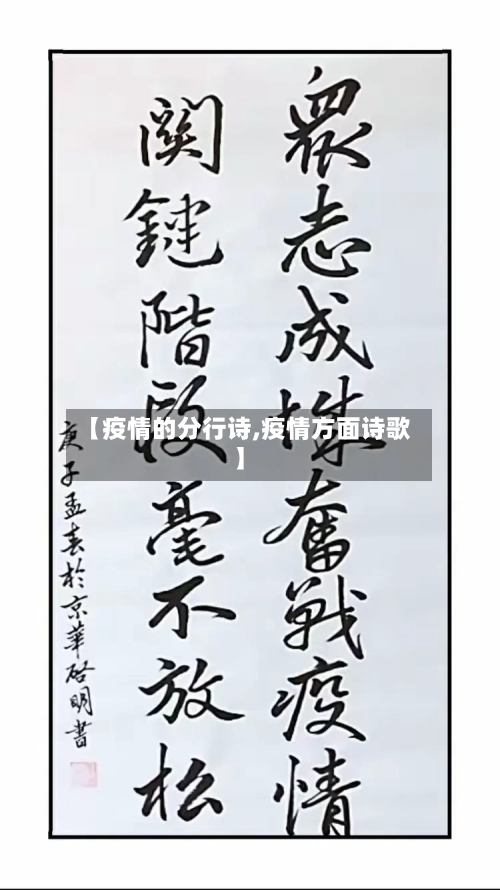 衆志成城奮戰疫情
關鍵階段毫不放松
庚子孟春於京華啓明書
【疫情的分行诗,疫情方面诗歌
】